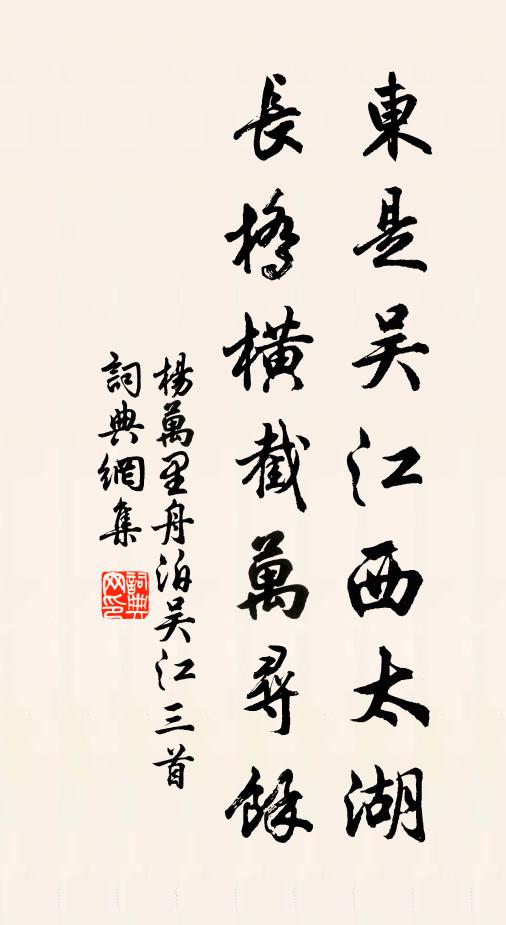 東是吴江西太湖
長橋橫截萬尋餘
楊萬里舟泊吴江三首
詞典網集
詞典
网印